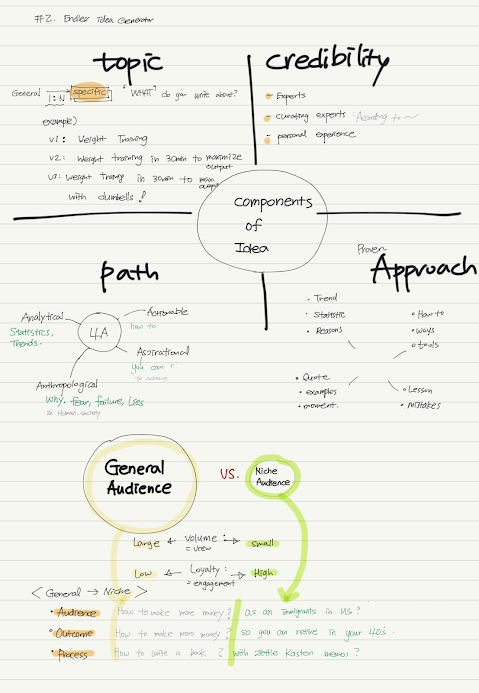 #2. Endless Idea Generator
topic
General → specific
1:N
"WHAT" do you write about?
example)
v1: Weight Training
v2: Weight training in 30min to maximize output
v3: Weight Training in 30min to max output
with dumbells!
credibility
Experts
curating experts : According to ~
personal experience
Components
of
Idea
path
4A
Analytical
Statistics,
Trends.
Actionable
how to
Aspirational
you can
to achieve
Anthropological
Why. Fear, failure, Lies
in Human society
Proven
Approach
• Trend
• Statistic
• Reasons
• How to
• ways
• tools
• Quote
• examples
• moment.
• Lesson
• mistakes
General
Audience
VS.
Niche
Audience
Large ← volume : → small
= view
Low ← Loyalty : → High
= engagement
< General → Niche >
• Audience How to make more money? as an immigrants in US?
• Outcome How to make more money? so you can retire in your 40s.
• Process How to write a book? with Zettle Kasten memos?